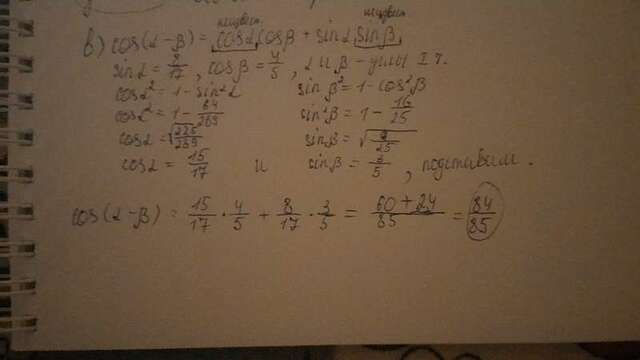 неизвест. неизвест.
в) cos(α-β) = cosα cosβ + sinα sinβ,
sinα = 8/17, cosβ = 4/5, α и β - углы I ч.
cos²α = 1 - sin²α sinβ² = 1 - cos²β
cos² = 1 - 64/289 sin²β = 1 - 16/25
cosα = √225/289 sinβ = √9/25
cosα = 15/17 и sinβ = 3/5, подставим.
cos(α-β) = 15/17 · 4/5 + 8/17 · 3/5 = 60+24/85 = 84/85